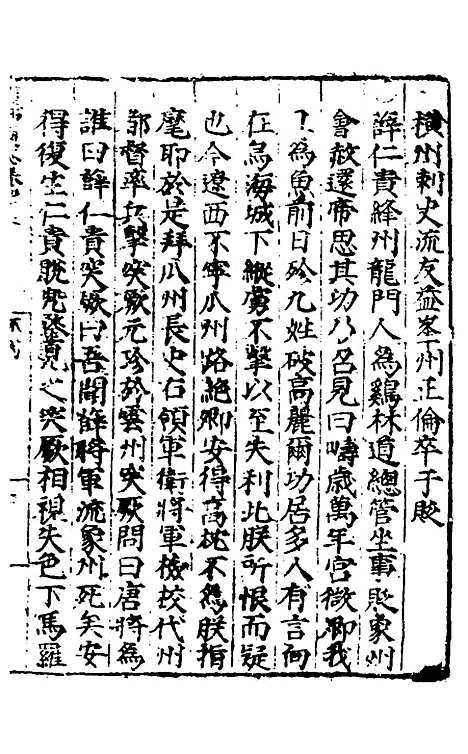 橫州刺史流友益峯州正倫卒子貶
薛仁貴絳州龍門人為鷄林道總管坐事貶象州
會赦還帝思其功乃召見曰疇歲萬年宮微卿我
且為魚前日殄九姓破高麗爾功居多人有言向
在烏海城下縱虜不擊以至失利此朕所恨而疑
也今遼西不寧瓜州路絶卿安得高枕不為朕指
麾耶於是拜瓜州長史右領軍衛將軍檢校代州
都督率兵擊突厥元珍於雲州突厥問曰唐將為
誰曰薛仁貴突厥曰吾聞薛將軍流象州死矣安
得復生仁貴脫兜鍪見之突厥相視失色下馬羅